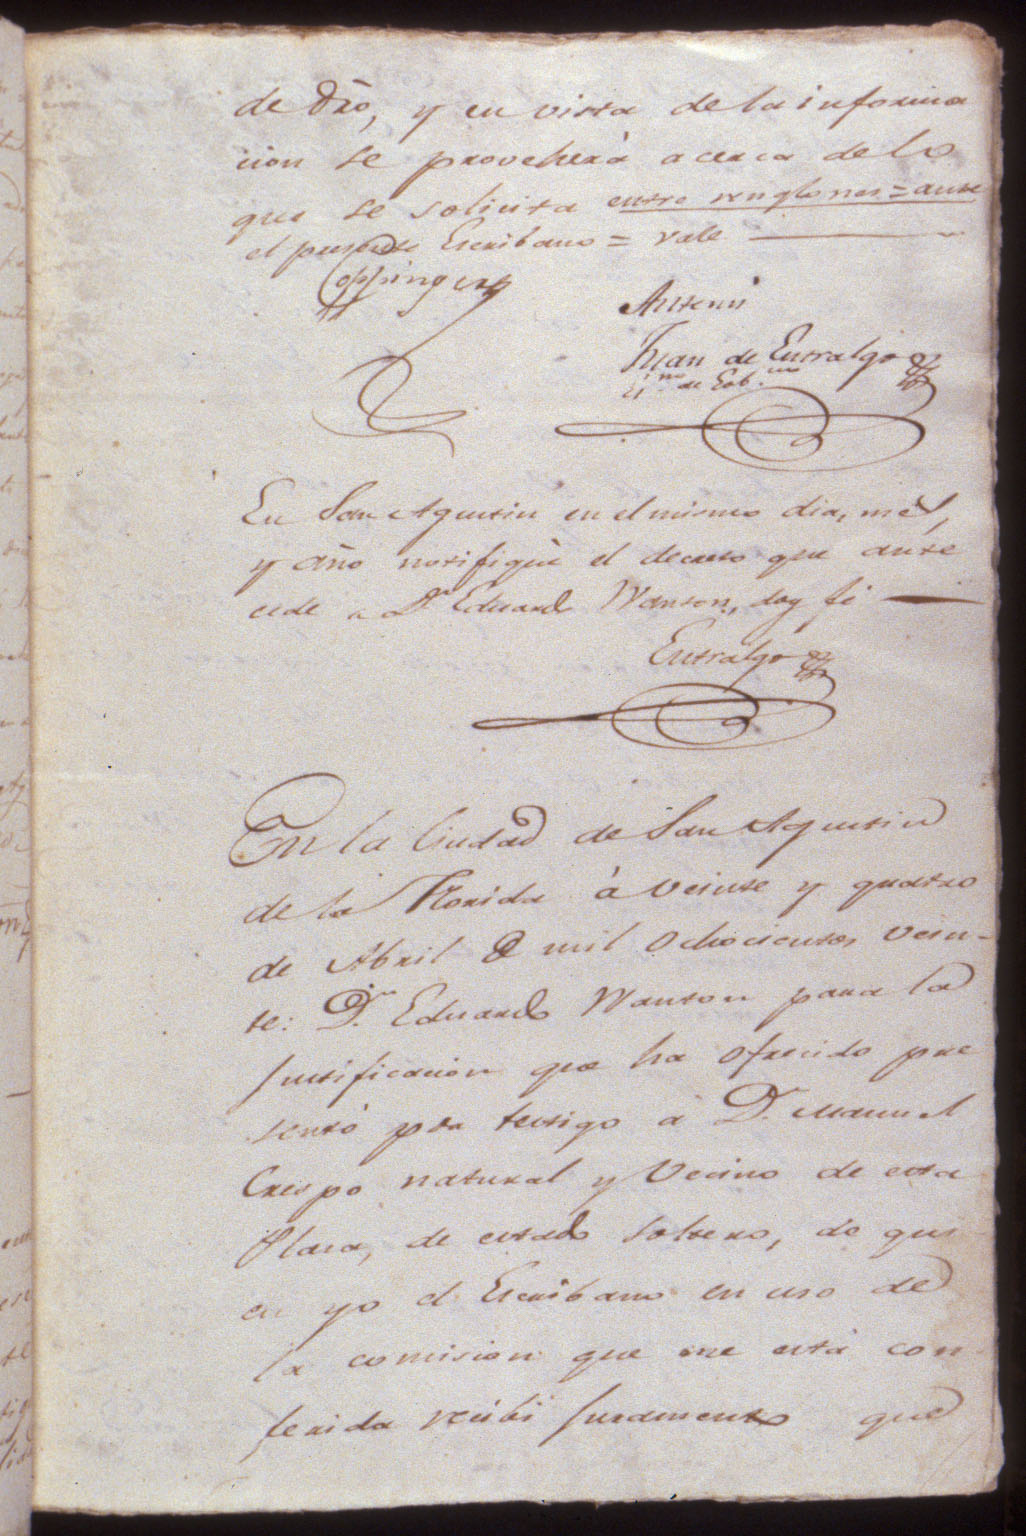 de dro, y en vista de la informa
cion se proveherá acerca de lo
que se solicita entre renglones = ante
el presente Escribano = vale
Coppinger
Antemi
Juan de Entralgo
Esno de Gobno
En San Agustin en el mismo dia, mes,
y año notifiqué el decreto que ante
cede a Dn Eduardo Wanton, doy fé
Entralgo
En la Ciudad de San Agustin
de la Florida á veinte y quatro
de Abril de mil ochocientos vein-
te: Dn Eduardo Wanton para la
justificacion que ha ofrecido pre
sentó por testigo á Dn Manuel
Crespo natural y vecino de esta
Plaza, de estado soltero, de qui
en yo el Escribano en uso de
la comision que me está con
ferida recibi juramento que